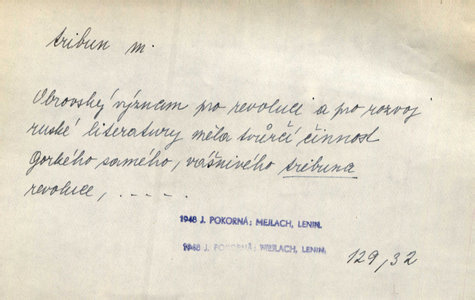 tribun m.
Obrovský význam pro revoluci a pro rozvoj
ruské literatury měla tvůrčí činnost
Gorkého samého, vášnivého tribuna
revoluce, – – – – –
1948 J. POKORNÁ: MEJLACH, LENIN.
1948 J. POKORNÁ: MEJLACH, LENIN.
129,32